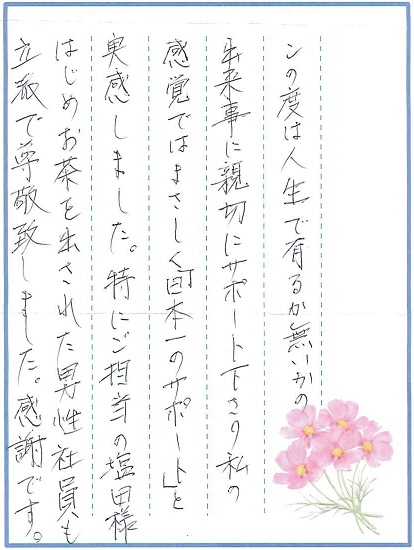 この度は人生で有るか無いかの
出来事に親切にサポート下さり私の
感覚ではまさしく「日本一のサポート」と
実感しました。特にご担当の塩田様
はじめお茶を出された男性社員も
立派で尊敬致しました。感謝です。